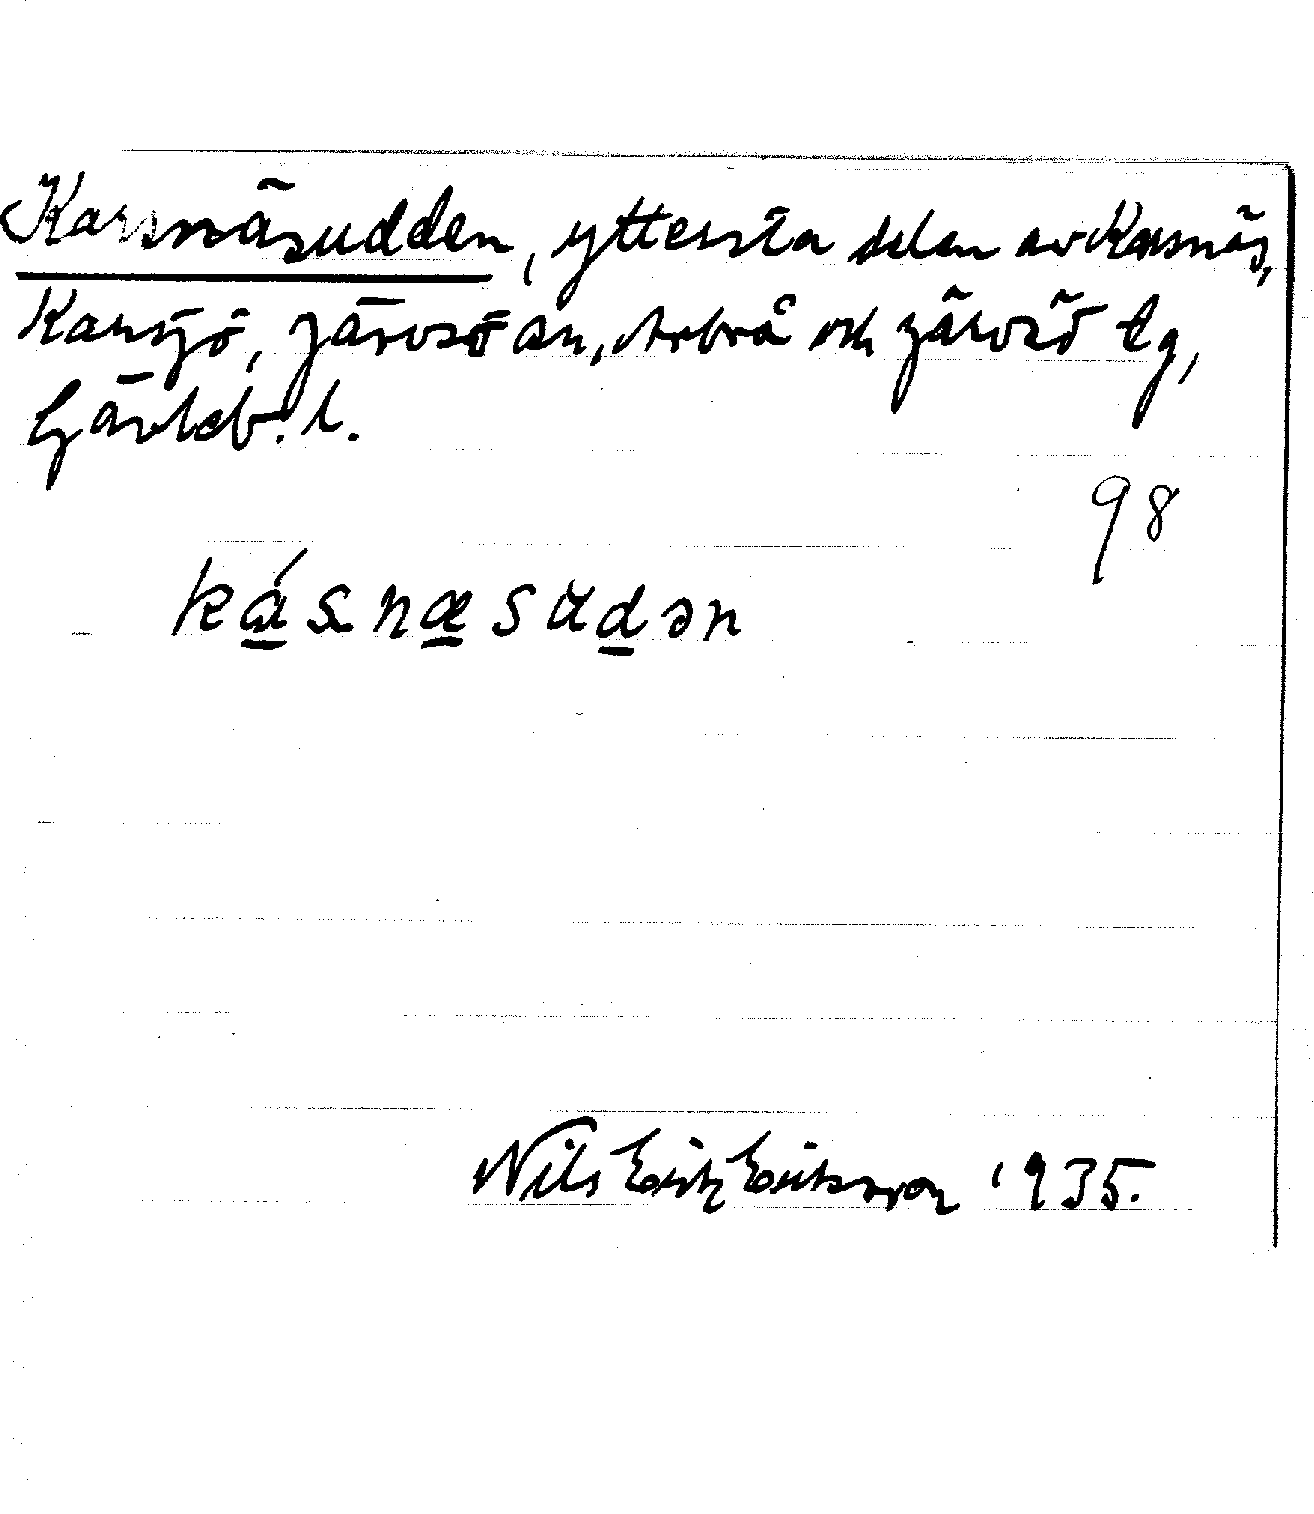 Karsnäsudden, yttersta delen av Karsnäs,
Karsjö, Järvsö sn, Arbrå och Järvsö tg,
Gävleb. l.
98
kásnæsudən
Nils Eritz Eriksson 1935.